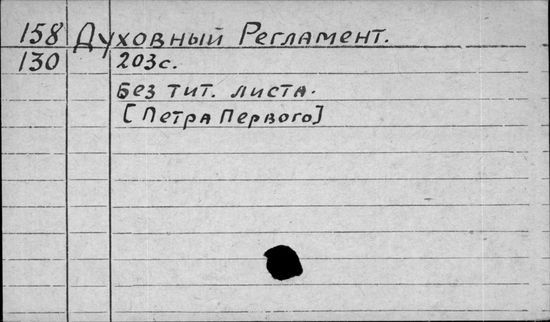 158 Духовный Регламент.
130 203с.
Без тит. листа.
[Петра Первого]